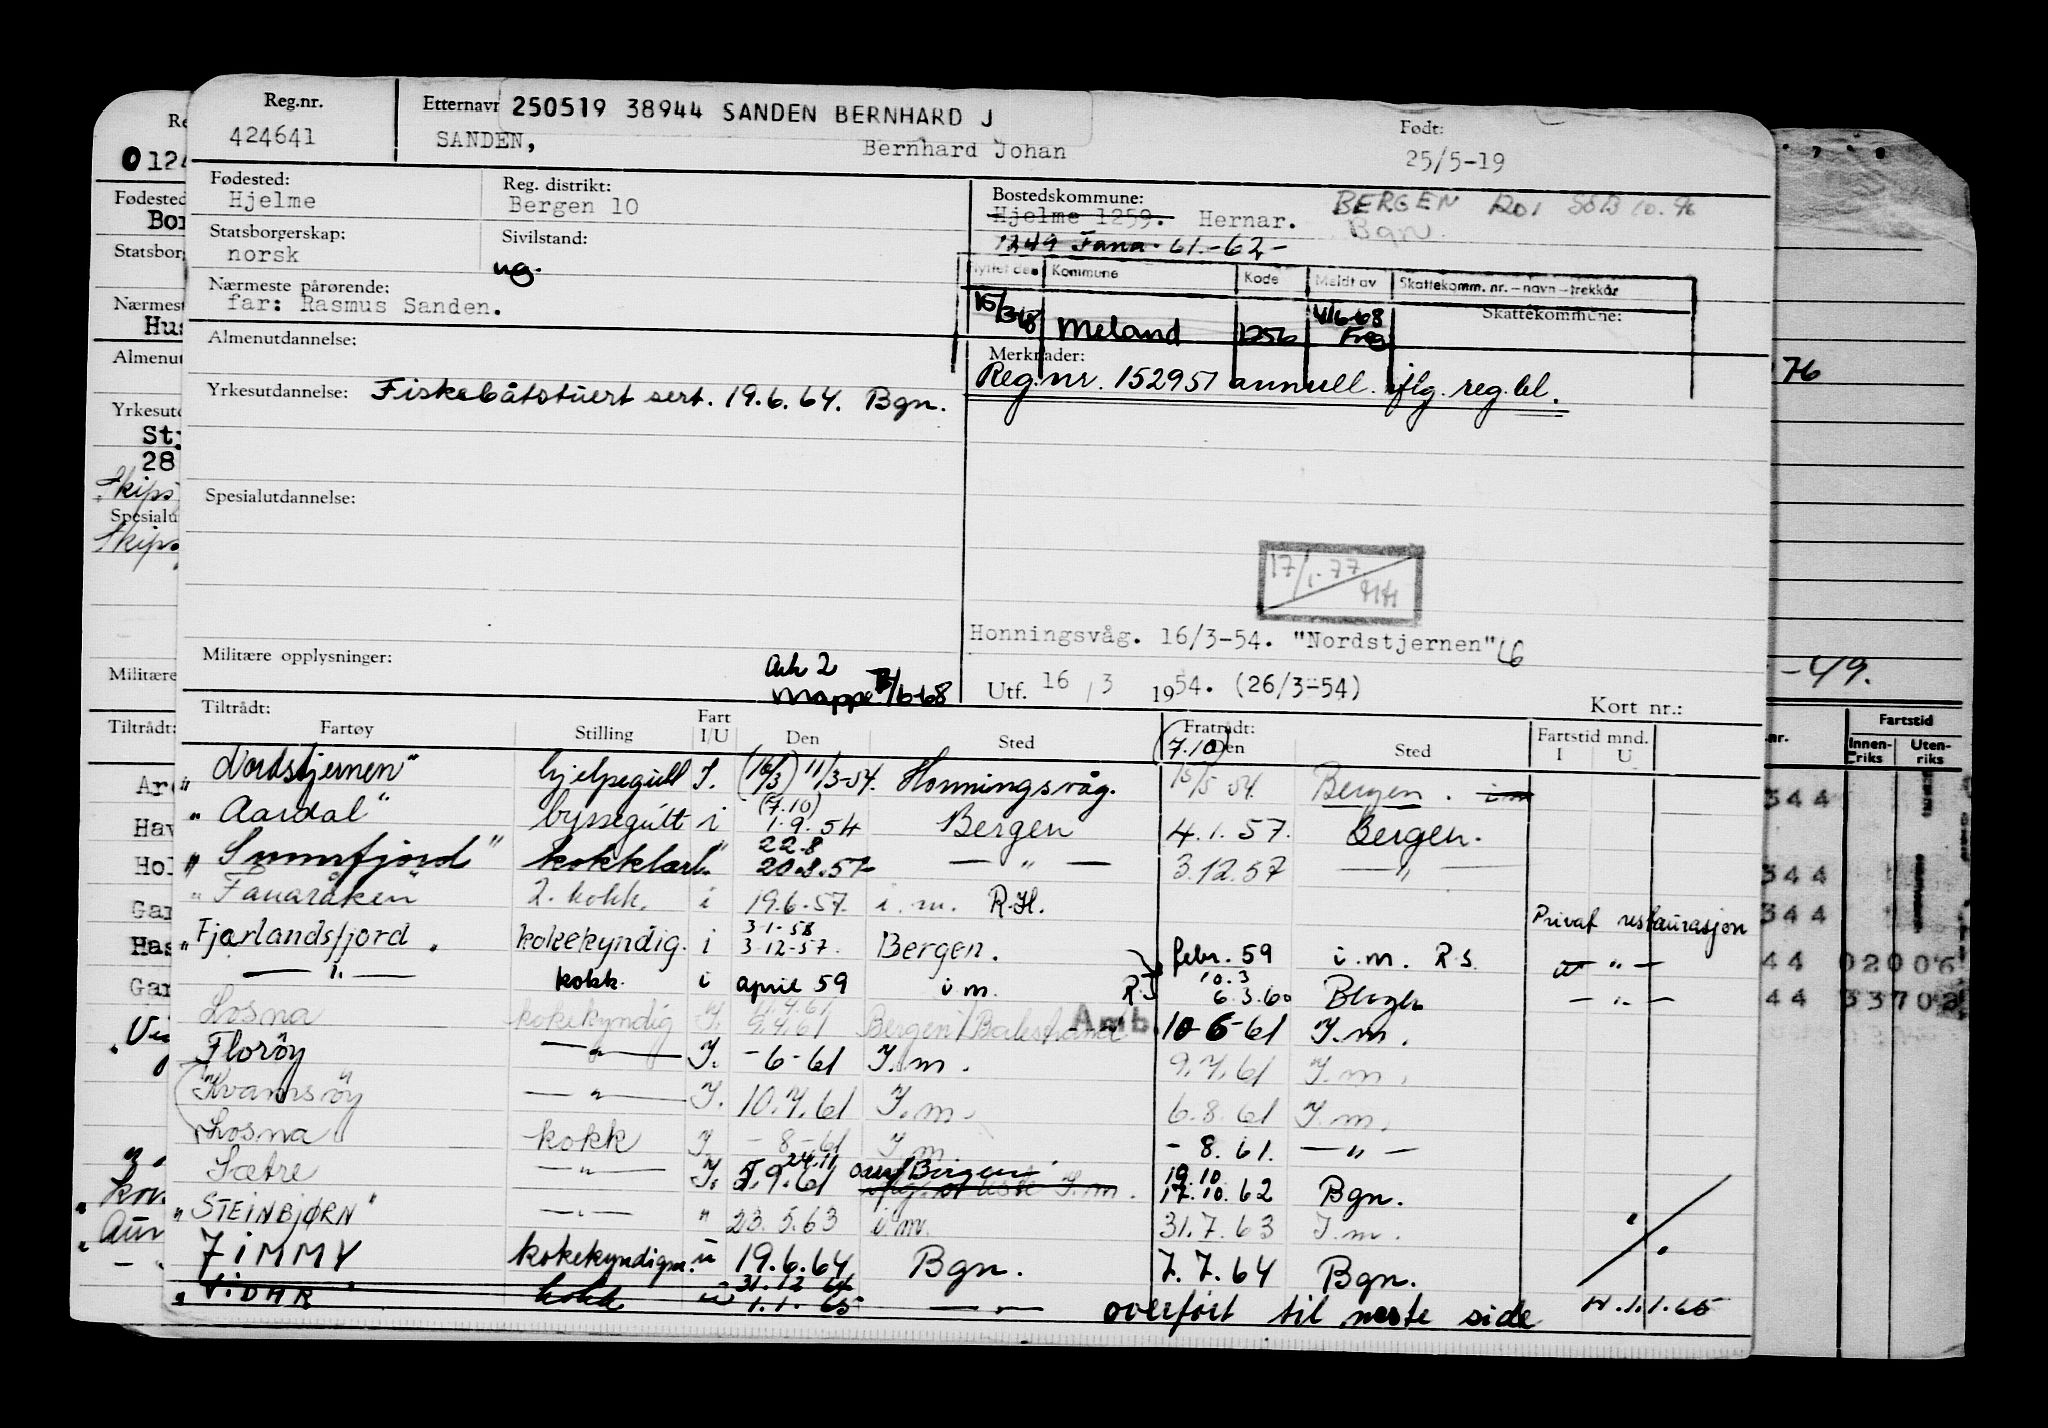 Reg.nr. Etternavn 250519 38944 SANDEN BERNHARD J Født:
424641 SANDEN, Bernhard Johan 25/5-19
Fødested: Reg. distrikt: Bostedskommune:
Hjelme Bergen 10 Hjelme 1259. Hernar. BERGEN
Bgn
Statsborgerskap: Sivilstand: 1249 Fana 61-62-
norsk ug.
Kommune Kode Meldt av Skattekomm. nr. - navn - trekkår
Nærmeste pårørende:
far: Rasmus Sanden. Meland 1256 Skattekommune:
Almenutdannelse: Merknader:
Reg.nr. 152951 annull. iflg. reg.bl.
Yrkesutdannelse: Fiskebåtstuert sert. 19.6.64. Bgn.
Spesialutdannelse:
17/1-77
HH
Honningsvåg. 16/3-54. "Nordstjernen"
Militære opplysninger: Ark 2
Mappe /6-68 Utf. 16 / 3 1954. (26/3-54)
Tiltrådt: Fratrådt: Kort nr.:
Fartøy Stilling Fart I/U Den Sted Den Sted Fartstid mnd. I U
(7.10)
"Nordstjernen" hjelpegutt I. (16/3) 11/3-54. Honningsvåg. 15/5 54. Bergen. i.m
(7.10)
"Aardal" byssegutt i 1.9.54 Bergen 4.1.57. Bergen.
22.8
"Sunnfjord" kokklærl. " 20.8.57 — " — 3.12.57 — " —
"Fanaråken" 2. kokk. i 19.6-57. i.m. R.H.
Privat restaurasjon
3-1-58
"Fjærlandsfjord. kokekyndig. i 3-12-57. Bergen. febr. 59 i.m. R.S. — " —
— " — kokk. i april 59 i.m. 10.3 6.3.60 Bergen — " —
11.4.61
Losna kokekyndig I. 9.4.61 Bergen/Balestrand Amb. 10-6-61 I.m.
Florøy — " — I. -6-61 I.m. 9.7.61 I.m.
Kvamsøy — " — I. 10.7.61 I.m. 6.8.61 I.m.
Losna kokk I. -8-61 I.m. -8.61. — " —
24.11 19.10
Sætre — " — I. 5.9.61 Bergen I.m. 17.10.62 Bgn.
"STEINBJØRN" — " — " 23.5.63 i.m. 31.7.63 I.m.
JIMMY kokekyndig u 19.6.64 Bgn. 7.7.64 Bgn.
31.12.64
"VIDAR kokk u 1.1.65 — " — overført til neste side 1.1.65
0124
Fødested
Bor
Statsborg
Nærmest
Hus
Almenut
Yrkesutd
28
Spesialu
Militære
Tiltrådt:
Hav
Hol
Gar
Has
Gar
76
-49.
nr. Fartstid
Innenriks Utenriks
344
344
344
44 02006
44